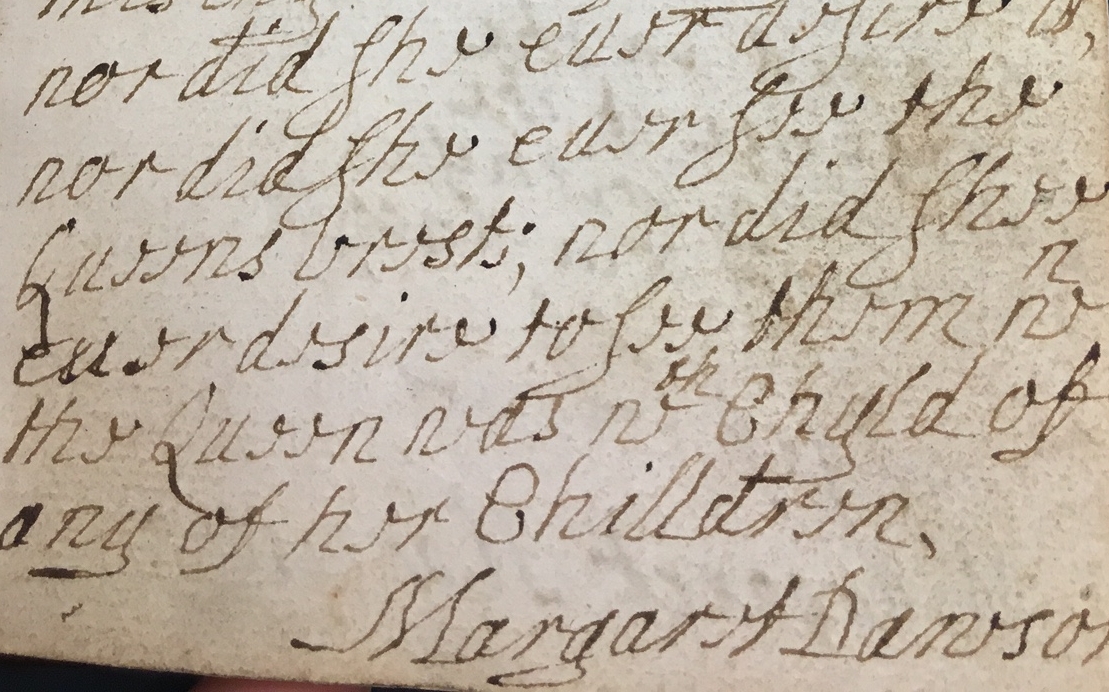 nor did she euer desire it,
nor did she euer see the
Queens brests; nor did shee
euer desire to see them wn
the Queen was wth Chyld of
any of her Chilldren,
Margaret Dawson